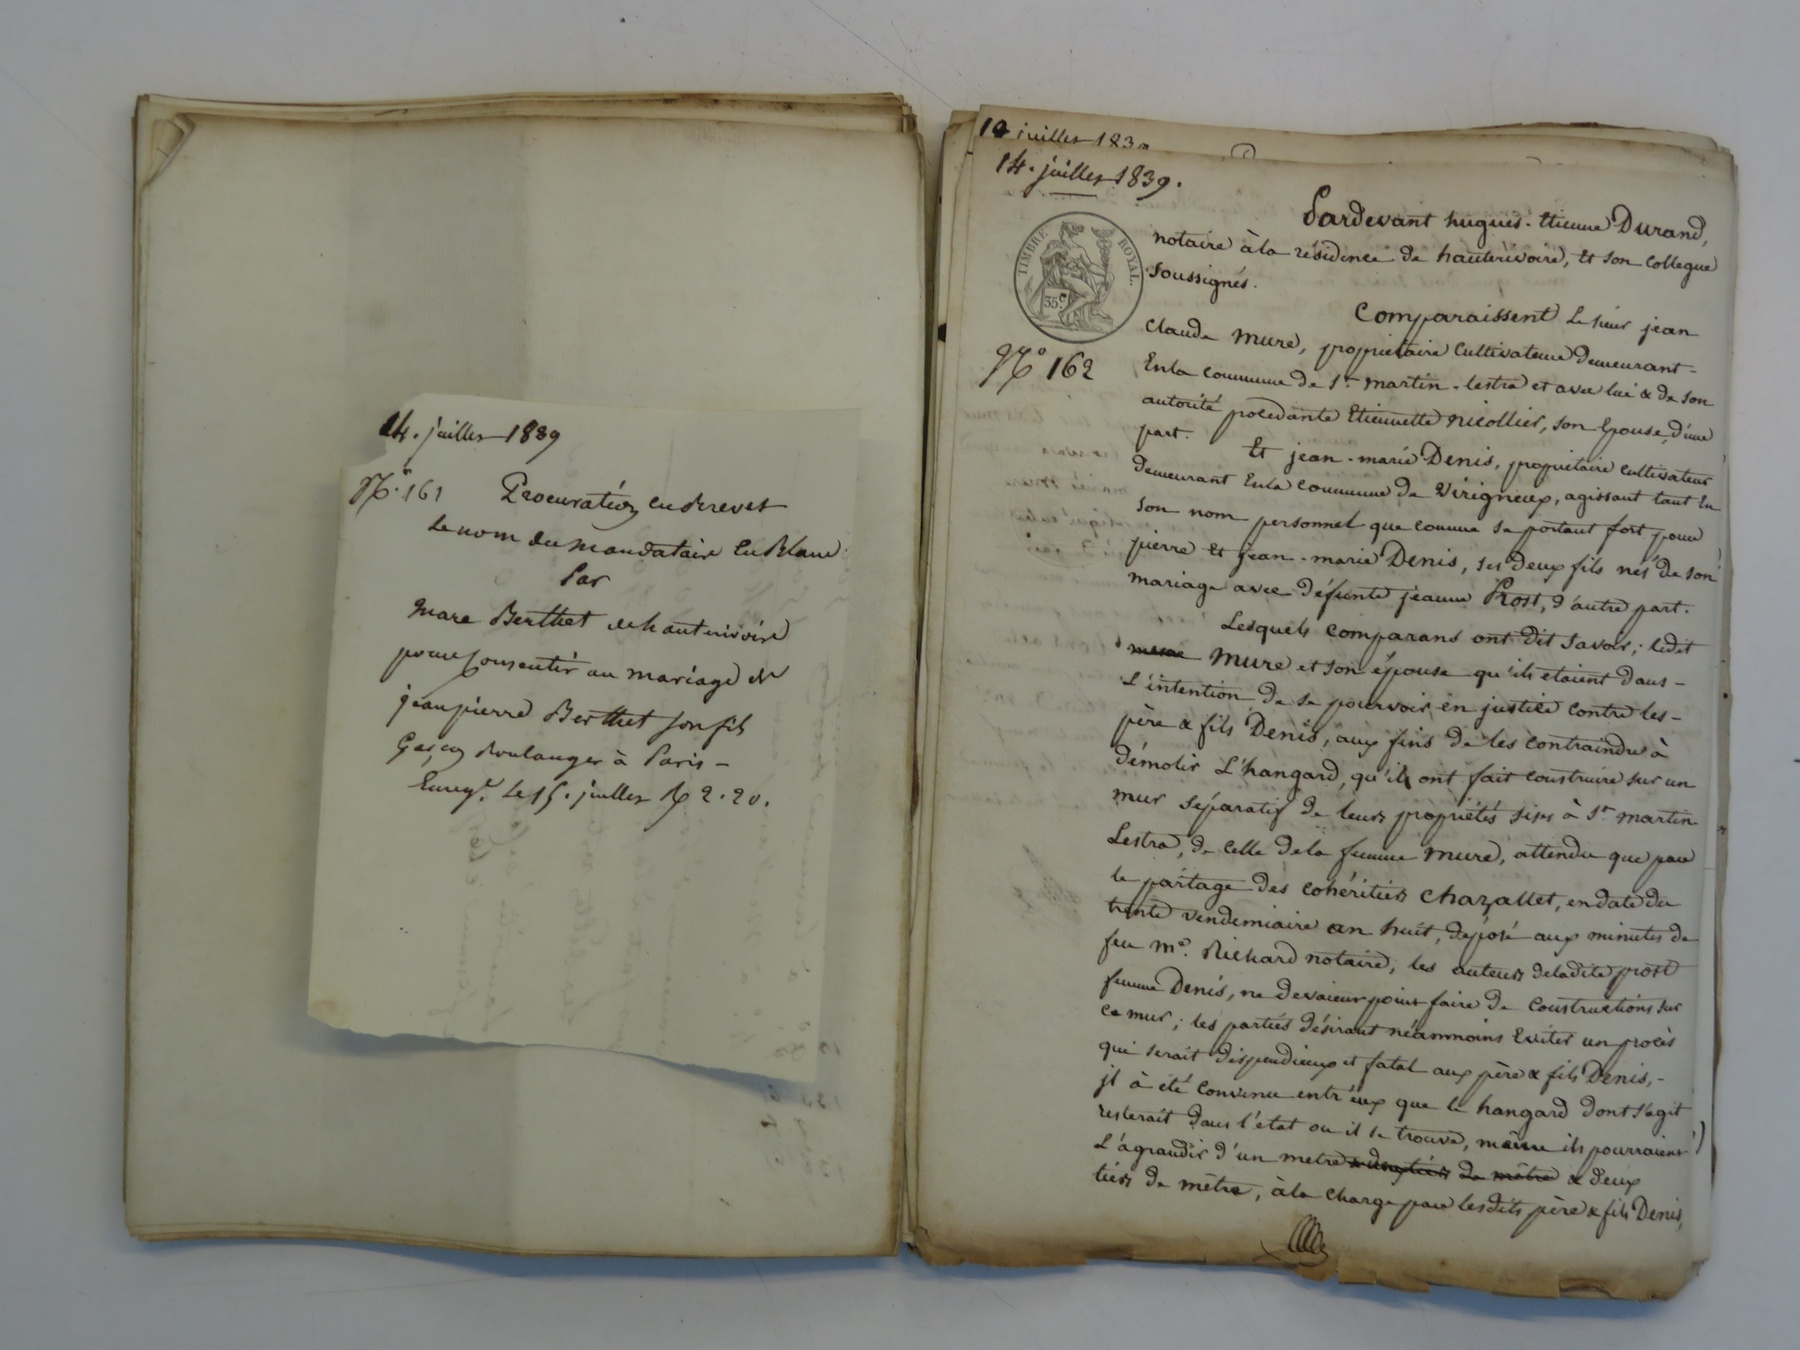 14. juillet 1839
N.° 161 Procuration en Brevet
Le nom du mandataire En Blanc
Par
Marc Berthet de hauterivoire
pour Consentir au mariage de
jean pierre Berthet son fils
Garçon Boulanger à Paris -
Enreg.t Le 15. juillet R 2.20.
14 juillet 183
14. juillet 1839.
TIMBRE ROYAL
35 c
N.° 162
Pardevant hugues-Etienne Durand,
notaire à la résidence de hauterivoire, Et son collegue
soussignés.
Comparaissent Le sieur jean
Claude Mure, propriétaire Cultivateur demeurant-
En la commune de St martin-lestra et avec lui & de son
autorité procedante Etiennette Nicollier, son Epouse, d'une
part.
Et jean-marie Denis, propriétaire cultivateur
demeurant En la commune de Virigneux, agissant tant En
son nom personnel que comme se portant fort pour
pierre Et jean-marie Denis, ses deux fils nés de son
mariage avec défunte jeanne Prost, d'autre part.
Lesquels comparans ont dit savoir; ledit
Mure et son épouse qu'ils etaient dans -
L'intention de se pourvoir en justice contre les -
père & fils Denis, aux fins de les contraindre à
démolir L'hangard, qu'ils ont fait construire sur un
mur séparatif de leurs propriétés sises à St martin
Lestra, de celle de la femme Mure, attendu que par
le partage des cohéritiers Chazallet, en date du
trente vendemiaire an huit, déposé aux minutes de
feu Me. Richard notaire, les auteurs de ladite prost
femme Denis, ne devaient point faire de constructions sur
ce mur; les parties désirant néammoins Eviter un procès
qui serait dispendieux et fatal aux père & fils Denis, -
jl à été Convenu entr'eux que le hangard dont s'agit
resterait dans l'état ou il se trouve, même ils pourraient
L'agrandir d'un metre & deux tiers de mètre & deux
tiers de mètre, à la charge par lesdits père & fils Denis,